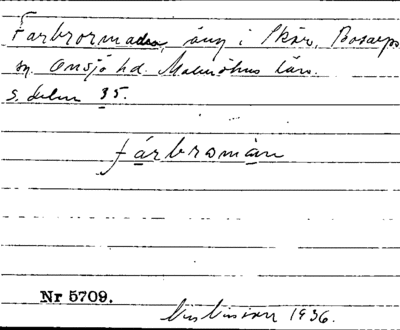 Farbrormaden, äng i Skär, Bosarps
sn. Onsjö hd. Malmöhus län.
S. delen 35.
farbromàn
Nr 5709.
1936.